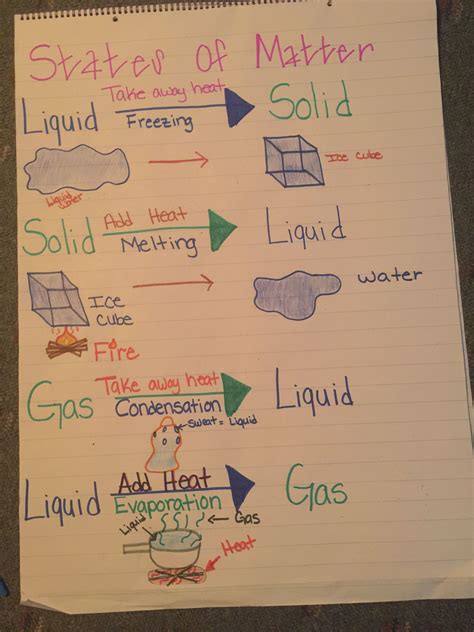 States of Matter
Liquid Take away heat Solid
Freezing
Liquid Water
Ice cube
Solid Add Heat Liquid
Melting
Ice Cube
water
Fire
Gas Take away heat Liquid
Condensation
sweat = Liquid
Liquid Add Heat Gas
Evaporation
Liquid
Gas
Heat